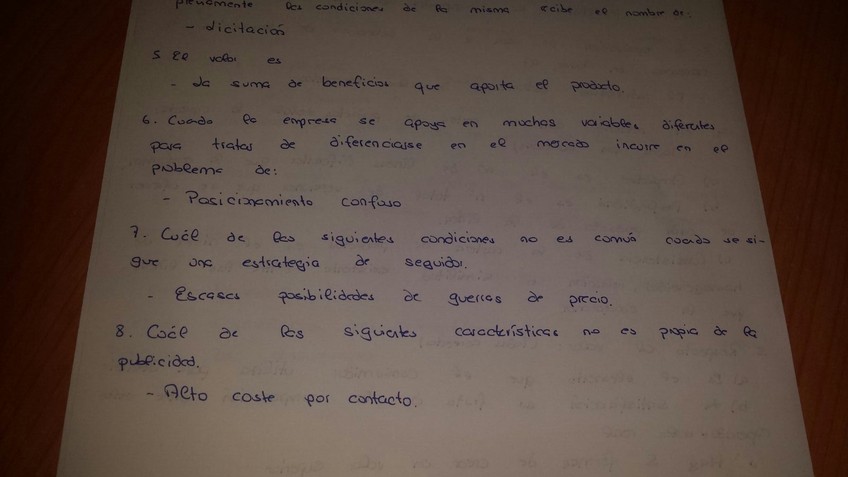 plenamente las condiciones de la misma recibe el nombre de:
- Licitación
5 El valor es
- La suma de beneficios que aporta el producto.
6. Cuando la empresa se apoya en muchas variables diferentes
para tratar de diferenciarse en el mercado incurre en el
problema de:
- Posicionamiento confuso
7. Cuál de las siguientes condiciones no es común cuando se si-
gue una estrategia de seguidor.
- Escases posibilidades de guerras de precio.
8. Cuál de las siguientes características no es propia de la
publicidad.
- Alto coste por contacto.